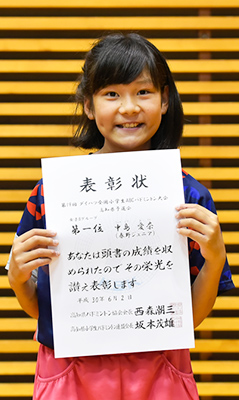 表彰状
第19回ダイハツ全国小学生ABCバドミントン大会
高知県予選会
第一位 中島 愛奈
(春野ジュニア)
あなたは頭書の成績を収
められたので その栄光を
讃え表彰します
平成30年6月2日
高知県バドミントン協会会長 西森潮三
高知県小学生バドミントン連盟会長 坂本茂雄